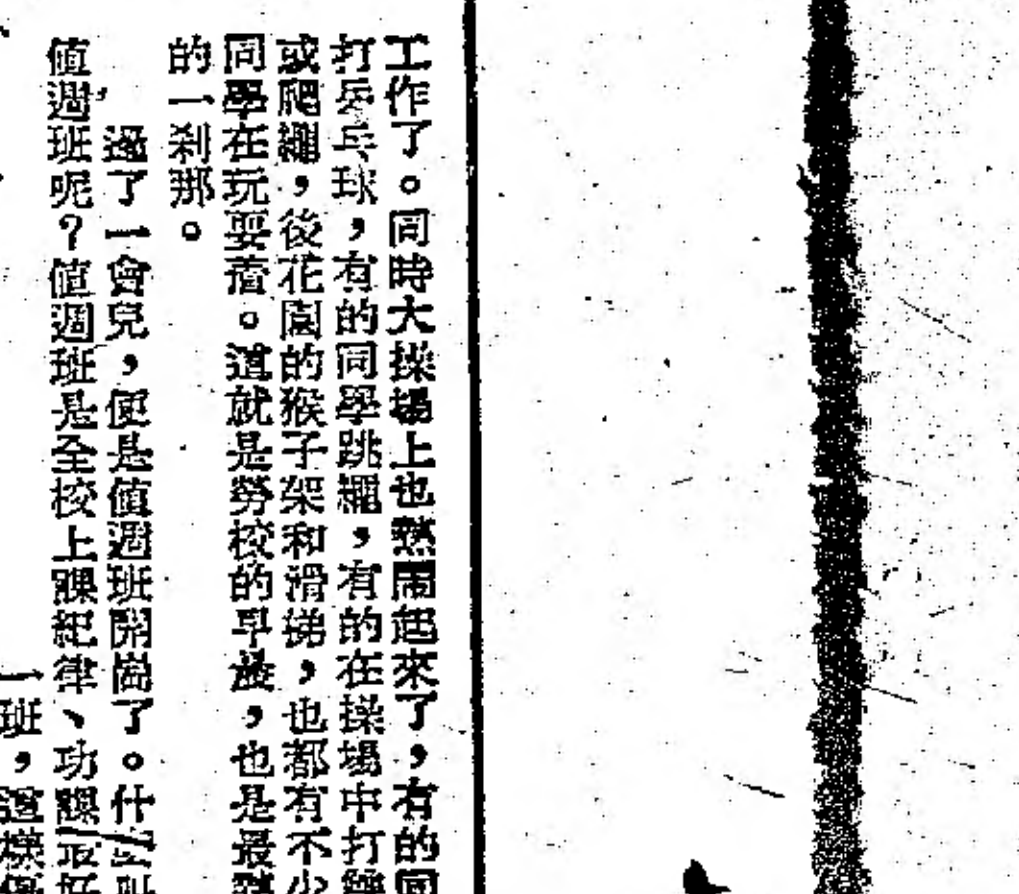 工作了。同時大操場上也熱鬧起來了，有的同
打乒乓球，有的同學跳繩，有的在操場中打
或爬繩，後花園的猴子架和滑梯，也都有不少
同學在玩耍着。這就是勞校的早晨，也是最
的一剎那。
過了一會兒，便是值週班開崗了。什么叫
值週班呢？值週班是全校上課紀律、功課最好
一班，這樣